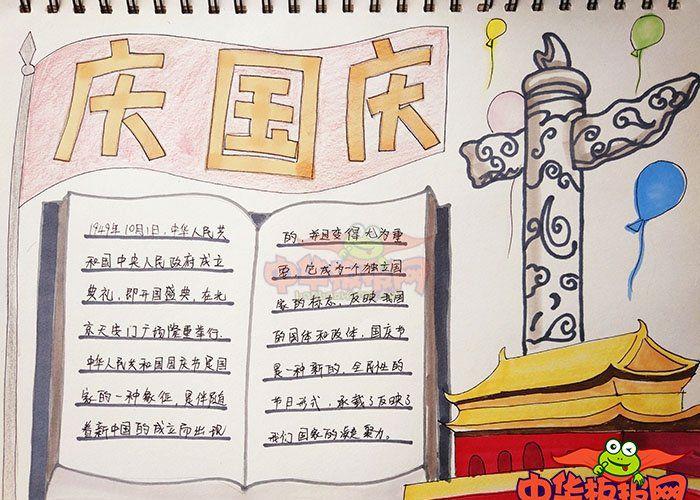 庆国庆
1949年10月1日，中华人民共
和国中央人民政府成立
典礼，即开国盛典，在北
京天安门广场隆重举行．
中华人民共和国国庆节是国
家的一种象征，是伴随
着新中国的成立而出现
的，并且变得尤为重
要，它成为一个独立国
家的标志，反映我国
的国体和政体，国庆节
是一种新的，全民性的
节日形式，承载了反映了
我们国家的凝聚力。
中华板报网
中华板报网